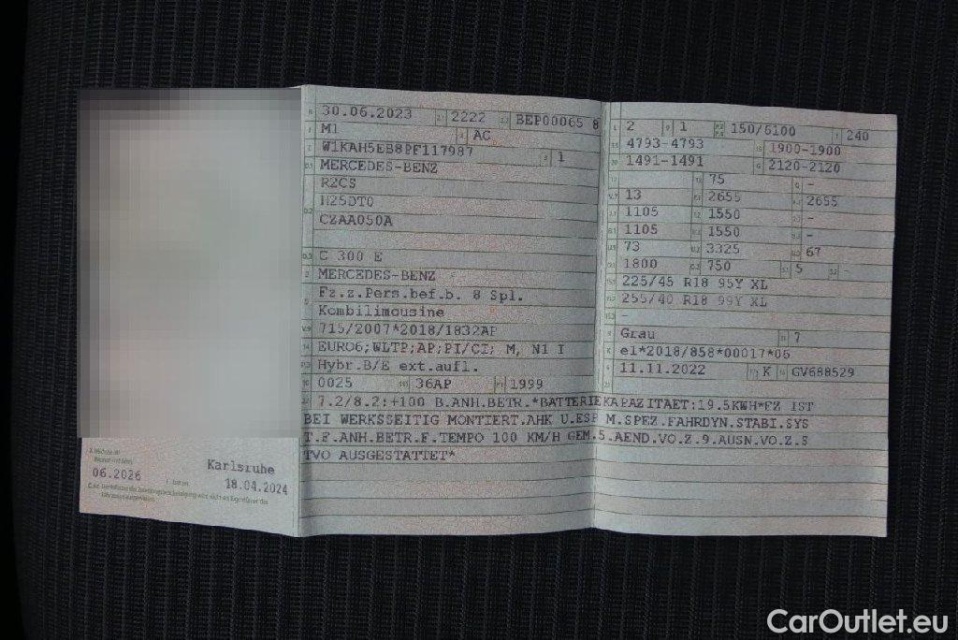 30.06.2023 2222 BEP00065 8
M1 AC
W1KAH5EB8PF117987 1
MERCEDES-BENZ
R2CS
H25DT0
CZAA050A
C 300 E
MERCEDES-BENZ
Fz.z.Pers.bef.b. 8 Spl.
Kombilimousine
715/2007*2018/1832AP
EURO6;WLTP;AP;PI/CI; M, N1 I
Hybr.B/E ext.aufl.
0025 36AP 1999
7.2/8.2:+100 B.ANH.BETR.*BATTERIEKAPAZITAET:19.5KWH*FZ IST
BEI WERKSSEITIG MONTIERT.AHK U.ESP M.SPEZ.FAHRDYN.STABI.SYS
T.F.ANH.BETR.F.TEMPO 100 KM/H GEM.5.AEND.VO.Z.9.AUSN.VO.Z.S
TVO AUSGESTATTET*
2 1 150/6100 240
4793-4793 1900-1900
1491-1491 2120-2120
- 75 -
13 2655 2655
1105 1550 -
1105 1550 -
73 3325 67
1800 750 5 -
225/45 R18 95Y XL
255/40 R18 99Y XL
-
Grau 7
e1*2018/858*00017*06
11.11.2022 K GV688529
06.2026 Karlsruhe
18.04.2024
CarOutlet.eu